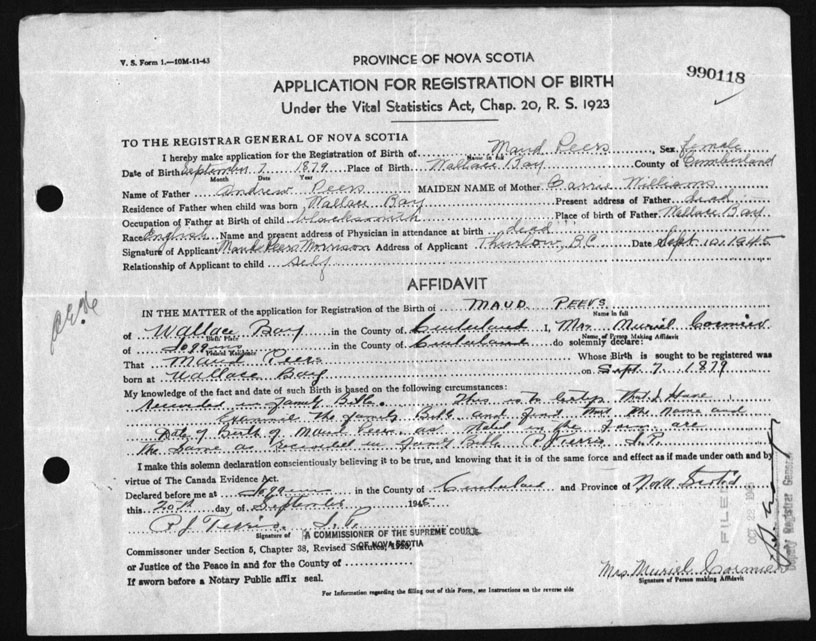 V. S. Form 1.—10M-11-43
PROVINCE OF NOVA SCOTIA
990118
APPLICATION FOR REGISTRATION OF BIRTH
Under the Vital Statistics Act, Chap. 20, R. S. 1923
TO THE REGISTRAR GENERAL OF NOVA SCOTIA
I hereby make application for the Registration of Birth of Maud Peers, Sex female
Name in full
Date of Birth September 7 1879 Place of Birth Wallace Bay County of Cumberland
Month Date Year
Name of Father Andrew Peers MAIDEN NAME of Mother Carrie Williams
Residence of Father when child was born Wallace Bay Present address of Father dead
Occupation of Father at Birth of child blacksmith Place of birth of Father Wallace Bay
Race English Name and present address of Physician in attendance at birth dead
Signature of Applicant Maud Peers Morrison Address of Applicant Thurlow, B.C. Date Sept 10, 1945
Relationship of Applicant to child self
AFFIDAVIT
IN THE MATTER of the application for Registration of the Birth of MAUD PEERS
Name in full
of Wallace Bay in the County of Cumberland I, Mrs. Muriel Cormier
Birth Place Name of Person Making Affidavit
of Joggins in the County of Cumberland do solemnly declare:
Present Residence
That Maud Peers Whose Birth is sought to be registered was
born at Wallace Bay on Sept. 7, 1879
My knowledge of the fact and date of such Birth is based on the following circumstances:
Recorded in family Bible. This is to Certify that I Have
Examined the family Bible and find that the Name and
Date of Birth of Maud Peers as stated in the form are
the same as recorded in family Bible P J Terris J. P.
I make this solemn declaration conscientiously believing it to be true, and knowing that it is of the same force and effect as if made under oath and by
virtue of The Canada Evidence Act.
Declared before me at Joggins in the County of Cumberland and Province of Nova Scotia
this 20th day of September 1945
P J Terris J. P.
Signature of A COMMISSIONER OF THE SUPREME COURT
OF NOVA SCOTIA
Commissioner under Section 5, Chapter 38, Revised Statutes, 1923,
or Justice of the Peace in and for the County of
If sworn before a Notary Public affix seal.
Mrs. Muriel Cormier
Signature of Person making Affidavit
For Information regarding the filling out of this Form, see Instructions on the reverse side
FILED
OCT 23
Deputy Registrar General